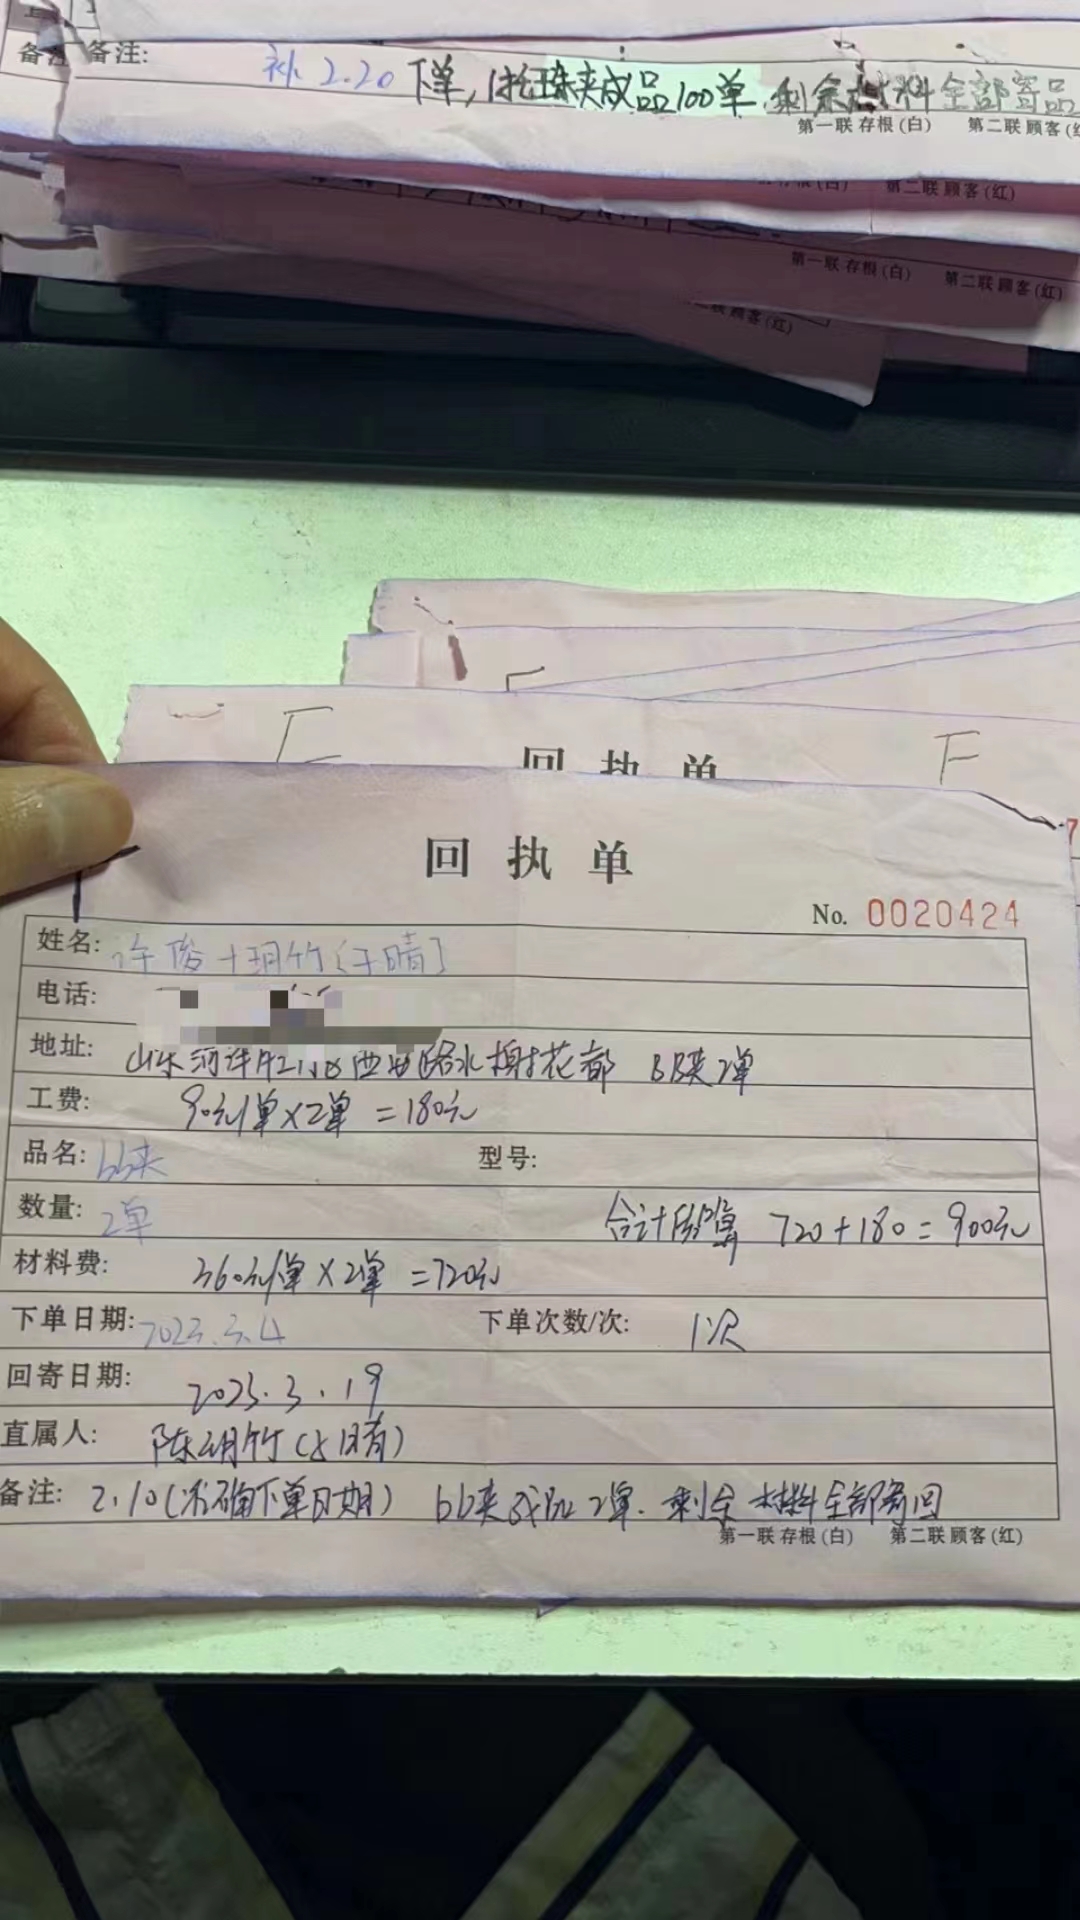 备注 备注: 补 2.20 下单, 1托珠夹成品100单. 剩余材料全部寄品
第一联 存根 (白) 第二联 顾客 (红
存根 (白) 第二联 顾客 (红)
第一联 存根 (白) 第二联 顾客 (红)
二联 顾客 (红)
F
回 执 单
回 执 单
No. 0020424
姓名: 许俊十玥竹(于晴)
电话:
地址: 山东 西 路水榭花都 BB夹2单
工费: 90元/单×2单 =180元
品名: bb夹 型号:
数量: 2单 合计 720+180=900元
材料费: 360元/单×2单 =720元
下单日期: 2023.3.4 下单次数/次: 1次
回寄日期: 2023.3.19
直属人: 陈玥竹( 晴)
备注: 2.10(准确下单日期) bb夹 2单. 剩余 材料全部寄回
第一联 存根 (白) 第二联 顾客 (红)